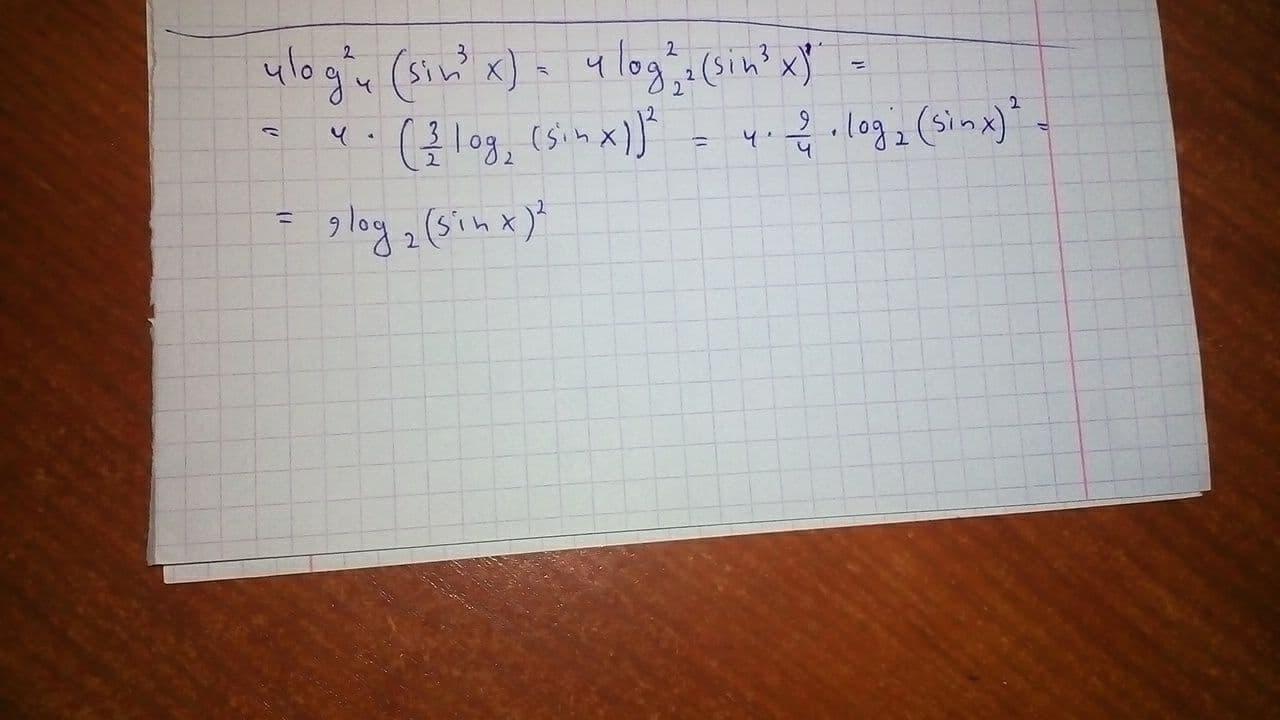 4log²₄ (sin³ x) = 4 log²_{2²} (sin³ x) =
= 4 · (3/2 log₂ (sin x))² = 4 · 9/4 · log₂ (sin x)² =
= 9log₂ (sin x)²